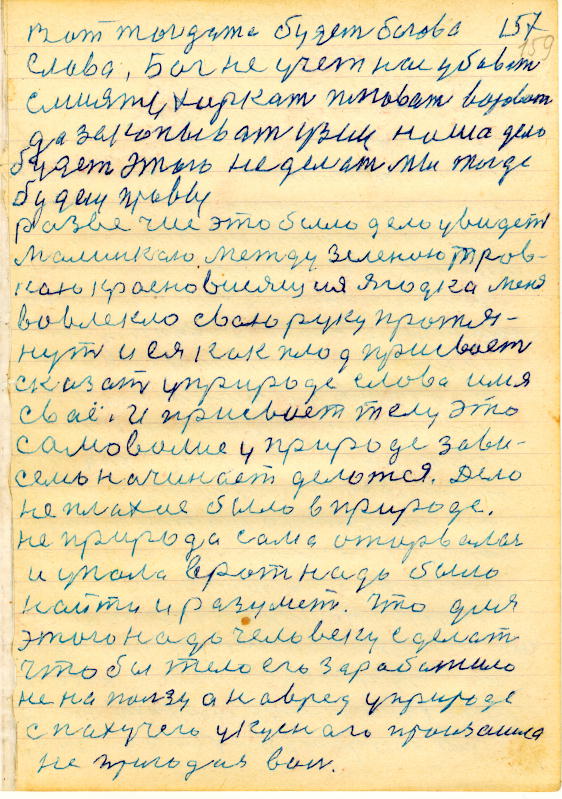 вот тогдата будет балова 157
159
слова, Бог не учет нас убават
смиятц харкат плюват вороват
да закопыват узим наша дело
будет этого не делат мы тогде
будем правы
разве чие это было дело увидет
малинкаю между зеленою тров-
каю красновисящия ягодка меня
вовлекло сваю руку протя-
нут и ея как плод присвоет
сказат уприроде слова имя
сваё. и присвоет телу это
самоволие у природе зави-
семь начинает делотся. Дело
не плахае было в природе.
не природа сама оторвалас
и упала в рот надо было
найти и разумет. что для
этого надо человеку сделат
что бы тело его зарабатило
не на ползу а навред уприроде
с пахучего укуснаго произашла
не пригодая вон.